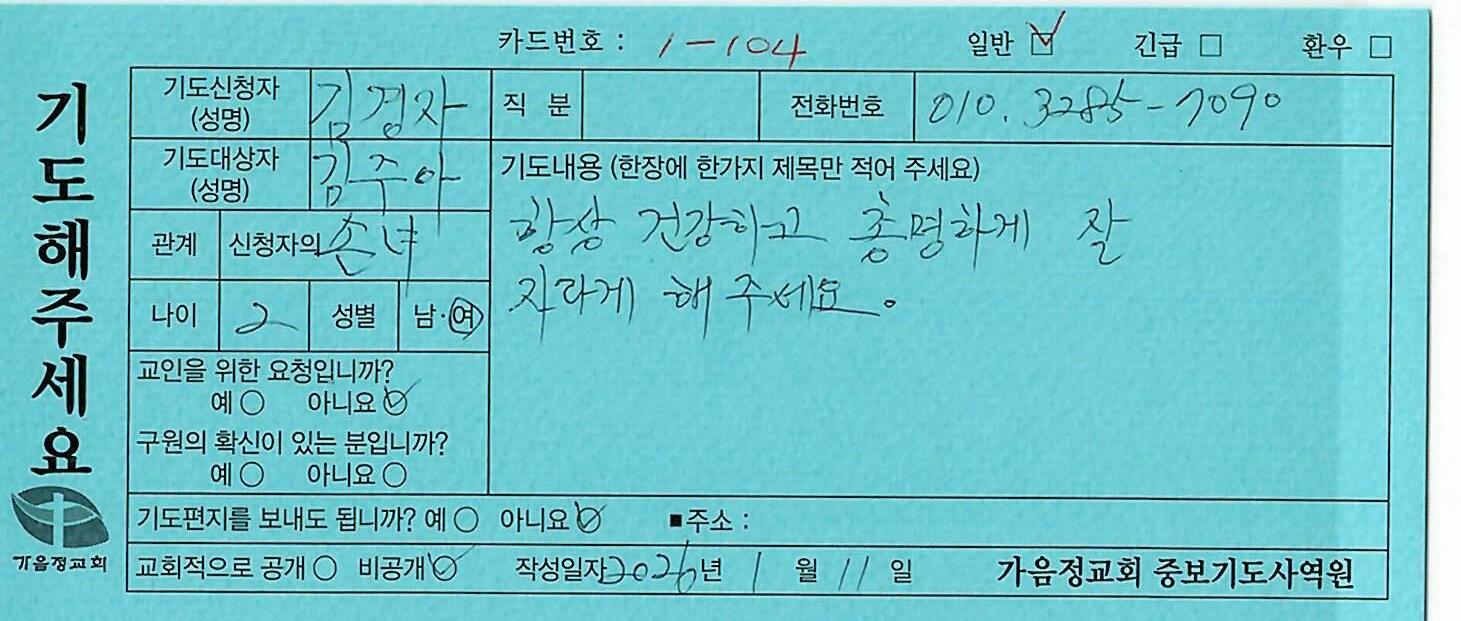 카드번호 : 1-104 일반 ☑ 긴급 □ 환우 □
기도해주세요
기도신청자 (성명) 김경자 직 분 전화번호 010. 3285-7090
기도대상자 (성명) 김주아
기도내용 (한장에 한가지 제목만 적어 주세요)
항상 건강하고 총명하게 잘
자라게 해 주세요.
관계 신청자의 손녀
나이 2 성별 남·여
교인을 위한 요청입니까?
예 ○ 아니요 ☑
구원의 확신이 있는 분입니까?
예 ○ 아니요 ○
기도편지를 보내도 됩니까? 예 ○ 아니요 ☑ ■주소 :
교회적으로 공개 ○ 비공개 ☑ 작성일자 2026년 1월 11일 가음정교회 중보기도사역원
가음정교회